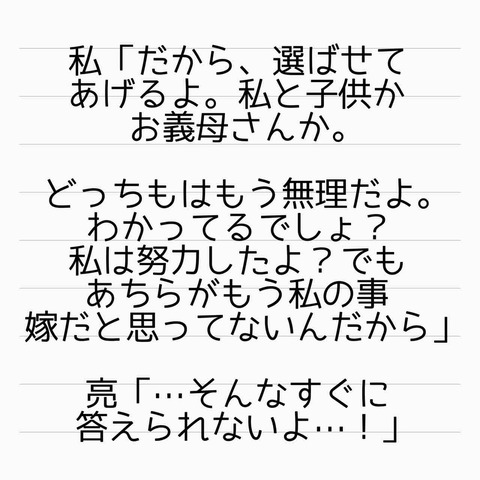 私「だから、選ばせて
あげるよ。私と子供か
お義母さんか。
どっちもはもう無理だよ。
わかってるでしょ？
私は努力したよ？でも
あちらがもう私の事
嫁だと思ってないんだから」
亮「…そんなすぐに
答えられないよ…！」